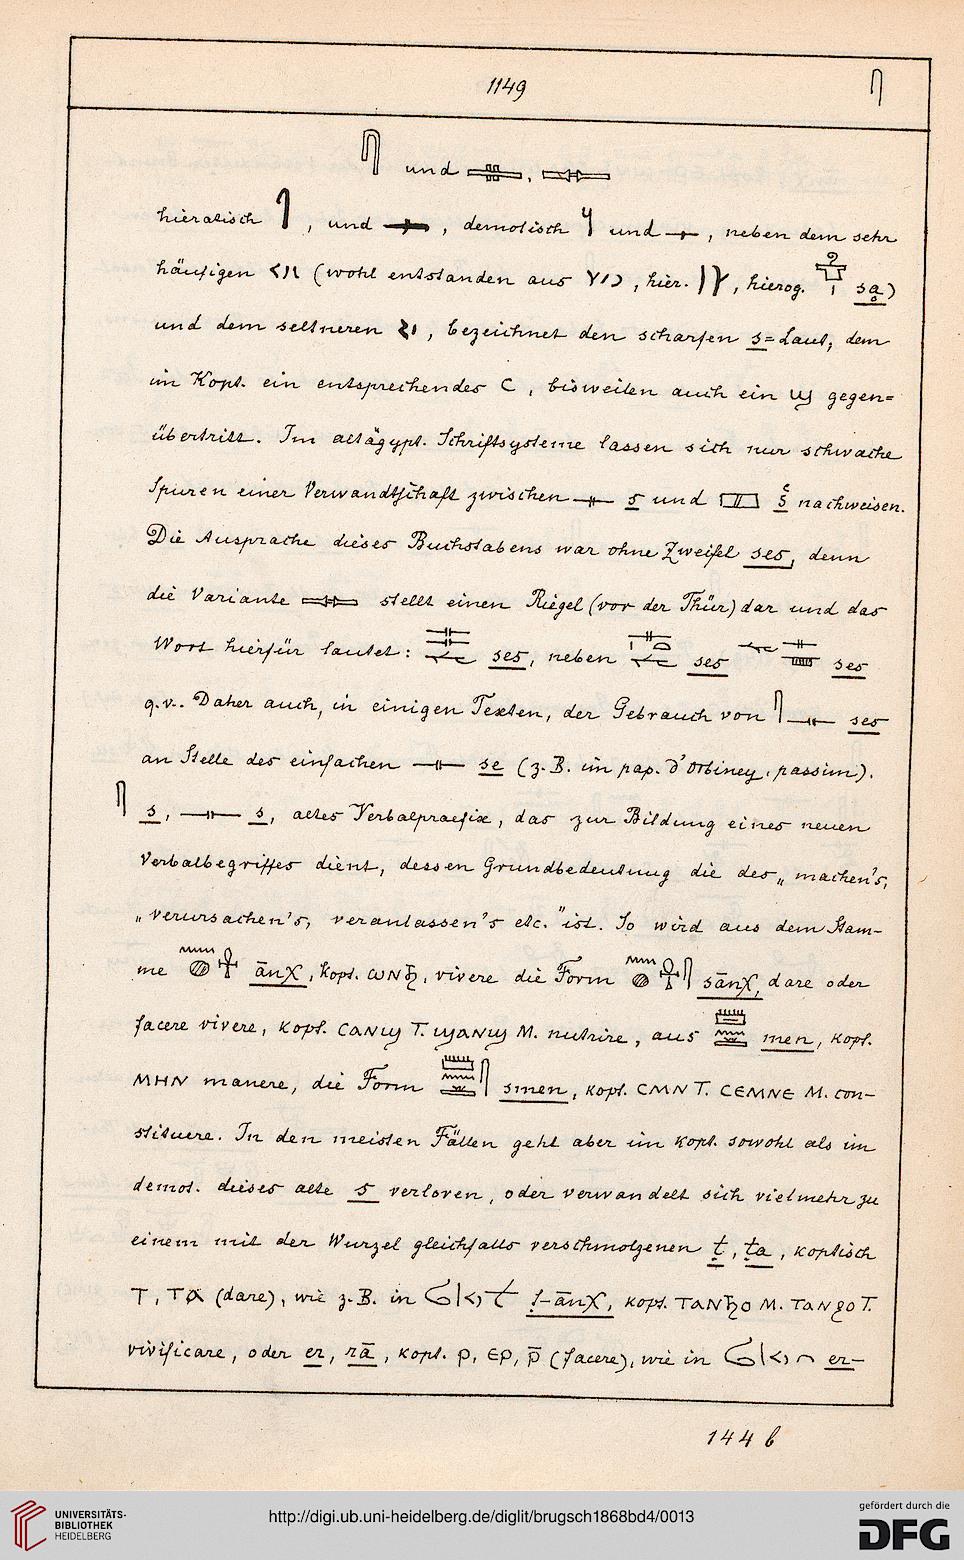 1149 𓋴
𓋴 und 𓊃,
hieratisch , und , demotisch und , neben dem sehr
häufigen (wohl entstanden aus , hier. , hierog. sạ)
und dem seltneren , bezeichnet den scharfen s=Laut, dem
im Kopt. ein entsprechendes ⲥ, bisweilen auch ein ϣ gegen=
übertritt. Im altägypt. Schriftsysteme lassen sich nur schwache
Spuren einer Verwandtschaft zwischen 𓊃 s und 𓈙 š nachweisen.
Die Aussprache dieses Buchstabens war ohne Zweifel ses, denn
die Variante stellt einen Riegel (vor der Thür) dar und das
Wort hierfür lautet: ses, neben ses ses
q.v.. Daher auch, in einigen Texten, der Gebrauch von 𓋴𓊃 ses
an Stelle des einfachen 𓊃 se (z.B. im pap. d'Orbiney, passim).
𓋴 s, 𓊃 s, altes Verbalpraefix, das zur Bildung eines neuen
Verbalbegriffes dient, dessen Grundbedeutung die des „machen's,
„verursachen's, veranlassen's etc." ist. So wird aus dem Stam-
me 𓈖𓐍𓋹 ānχ, kopt. ⲱⲛϧ, vivere die Form 𓈖𓐍𓋹𓋴 sānχ, dare oder
facere vivere, kopt. ⲥⲁⲛϣ T. ϣⲁⲛϣ M. nutrire, aus 𓏠𓈖 men, kopt.
ⲙⲏⲛ manere, die Form 𓏠𓈖𓋴 smen, kopt. ⲥⲙⲛ T. ⲥⲉⲙⲛⲉ M. con-
stituere. In den meisten Fällen geht aber im kopt. sowohl als im
demot. dieses alte s verloren, oder verwandelt sich vielmehr zu
einem mit der Wurzel gleichfalls verschmolzenen ṭ, ṭa, koptisch
ⲧ, ⲧⲁ (dare), wie z.B. in ṭ-ānχ, kopt. ⲧⲁⲛϧⲟ M. ⲧⲁⲛϩⲟ T.
vivificare, oder er, rā, kopt. ⲣ, ⲉⲣ, ⲣ̄ (facere), wie in er-
144 b
UNIVERSITÄTS-
BIBLIOTHEK
HEIDELBERG
http://digi.ub.uni-heidelberg.de/diglit/brugsch1868bd4/0013
gefördert durch die
DFG